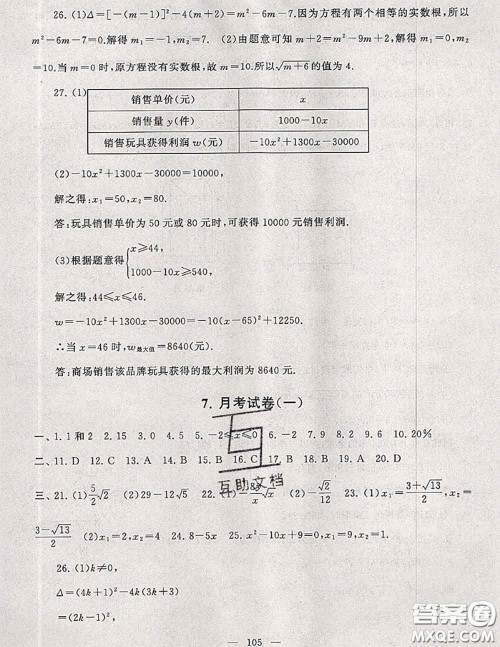 26. (1)Δ=[-(m-1)]²-4(m+2)=m²-6m-7.因为方程有两个相等的实数根,所以
m²-6m-7=0.解得 m₁=-1, m₂=7. (2)由题意可知 m+2=m²-9m+2.解得 m₁=0,m₂
=10.当 m=0 时,原方程没有实数根,故 m=10.所以√(m+6)的值为 4.
27. (1)
销售单价(元) x
销售量 y(件) 1000-10x
销售玩具获得利润 w(元) -10x²+1300x-30000
(2)-10x²+1300x-30000=10000,
解之得:x₁=50,x₂=80.
答:玩具销售单价为 50 元或 80 元时,可获得 10000 元销售利润.
(3)根据题意得{x⩾44,
1000-10x⩾540,
解之得:44⩽x⩽46.
w=-10x²+1300x-30000=-10(x-65)²+12250.
∴当 x=46 时,w最大值=8640(元).
答:商场销售该品牌玩具获得的最大利润为 8640 元.
7. 月考试卷(一)
一、1. 1 和 2 2. 15 3. 0 4. 5 5. -2⩽x⩽0 6. -2 7. 9 8. 4 9. 6 10. 20%
二、11. D 12. C 13. A 14. B 15. B 16. C 17. B 18. A 19. A 20. D
三、21. (1)5/2√2 (2)29-12√5 22. (1) x√x (2)-√2/12 23. (1)x₁=(3+√13)/2,x₂=
(3-√13)/2 (2)x₁=2,x₂=4 24. 8-5x 25. x²-10x+9=0;x=1.
26. (1)k≠0,
Δ=(4k+1)²-4k(3k+3)
=(2k-1)²,
— 105 —
互助文档
答案圈
MXQE.COM